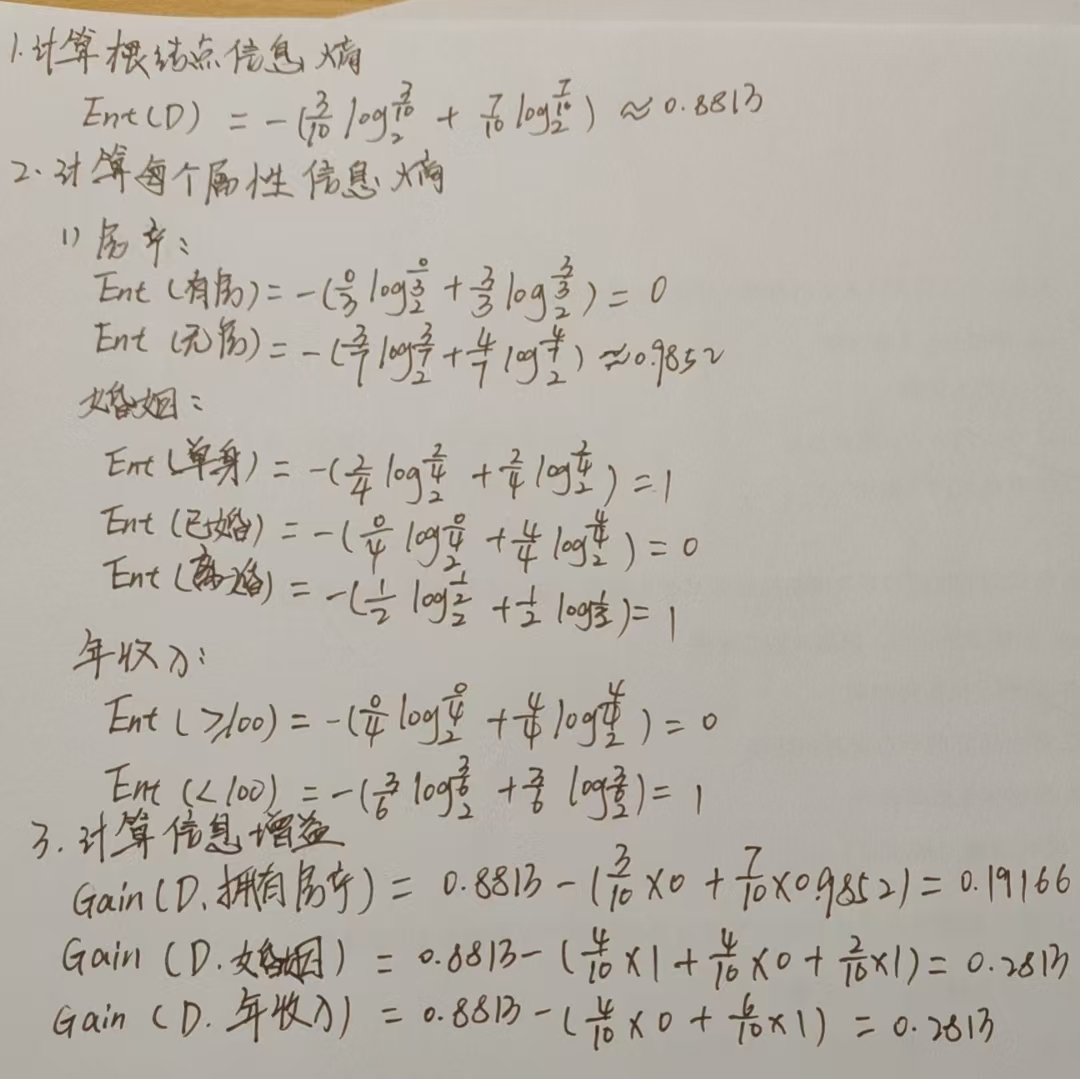 1.计算根结点信息熵
Ent(D) = -(3/10 log₂^(3/10) + 7/10 log₂^(7/10)) ≈ 0.8813
2.计算每个属性信息熵
1) 房产:
Ent(有房) = -(0/3 log₂^(0/3) + 3/3 log₂^(3/3)) = 0
Ent(无房) = -(3/7 log₂^(3/7) + 4/7 log₂^(4/7)) ≈ 0.9852
婚姻:
Ent(单身) = -(2/4 log₂^(2/4) + 2/4 log₂^(2/4)) = 1
Ent(已婚) = -(0/4 log₂^(0/4) + 4/4 log₂^(4/4)) = 0
Ent(离婚) = -(1/2 log₂^(1/2) + 1/2 log₂^(1/2)) = 1
年收入:
Ent(≥100) = -(0/4 log₂^(0/4) + 4/4 log₂^(4/4)) = 0
Ent(<100) = -(3/6 log₂^(3/6) + 3/6 log₂^(3/6)) = 1
3.计算信息增益
Gain(D.拥有房产) = 0.8813 - (3/10 × 0 + 7/10 × 0.9852) = 0.19166
Gain(D.婚姻) = 0.8813 - (4/10 × 1 + 4/10 × 0 + 2/10 × 1) = 0.2813
Gain(D.年收入) = 0.8813 - (4/10 × 0 + 6/10 × 1) = 0.2813